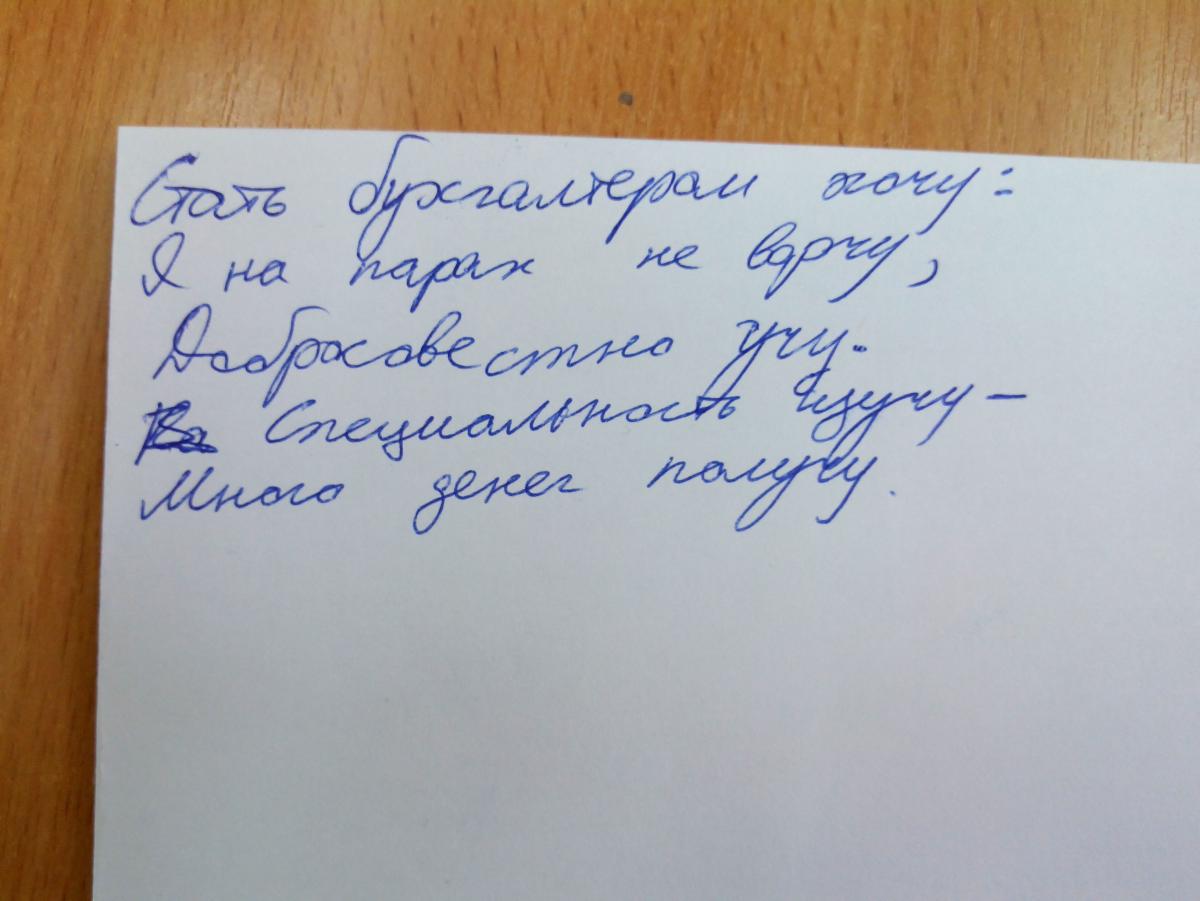 Стать бухгалтером хочу:
Я на парах не ворчу,
Добросовестно учу.
Специальность изучу –
Много денег получу.